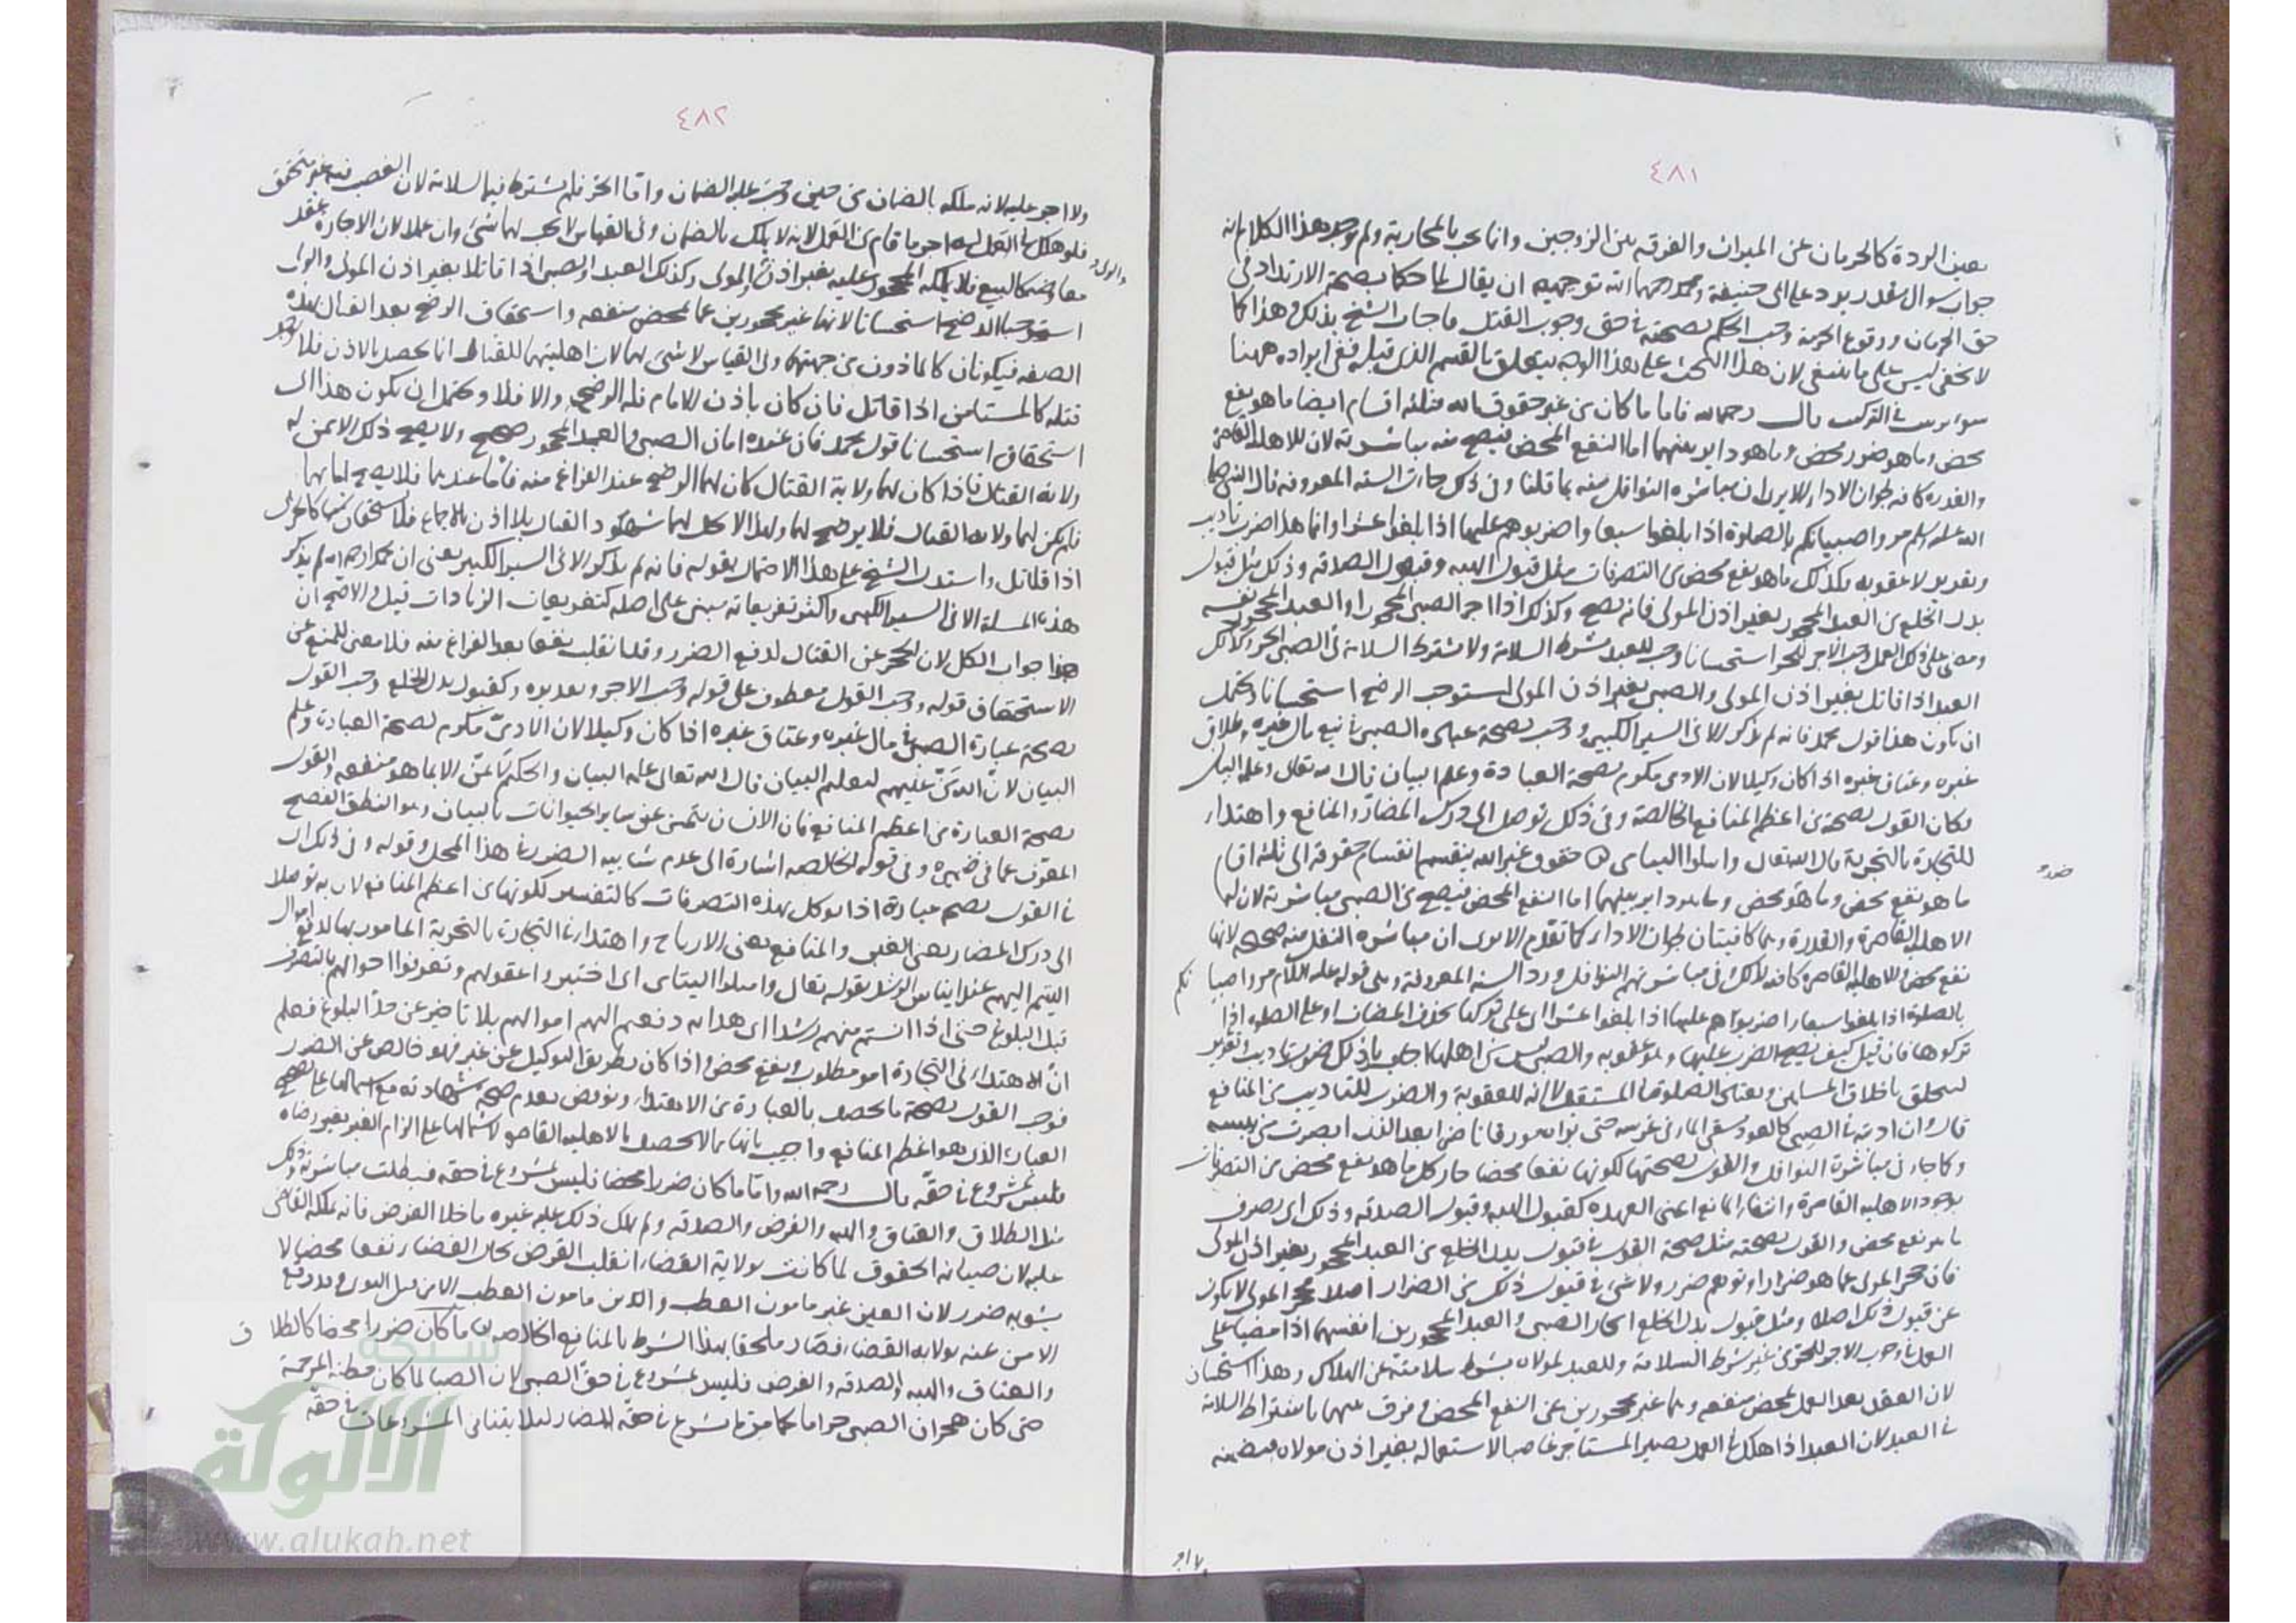 ٤٨١
بعين الردة كالحرمان عن الميراث والفرقة بين الزوجين وانما يجب بالمحاربة ولم توجد هذا الكلام كانه
جواب سوال مقدر يرد على ابى حنيفة ومحمد رحمهما الله توجيهه ان يقال لما حكما بصحة الارتداد فى
حق الحرمان ووقوع الحرمة وجب الحكم بصحته فى حق وجوب القتل فاجاب الشيخ بذلك وهذا كما
لا يخفى ليس على ما ينبغى لان هذا البحث على هذا الوجه يتعلق بالقسم الذى قبله ففى ايراده ههنا
سوء ترتيب التركيب قال رحمه الله فاما ما كان من غير حقوق الله فثلثة اقسام ايضا ما هو نفع
محض وما هو ضرر محض وما هو داير بينهما اما النفع المحض فيصح منه مباشرته لان الاهلية القاصرة
والقدرة كافية لجواز الاداء الا يرى ان مباشرة النوافل منه بما قلنا وفى ذلك جاءت السنة المعروفة قال النبى صلى
الله عليه وسلم مروا صبيانكم بالصلوة اذا بلغوا سبعا واضربوهم عليها اذا بلغوا عشرا وانما هذا ضرب تاديب
وتعزير لا عقوبة فكذلك ما هو نفع محض من التصرفات مثل قبول الهبة وقبول الصدقة وذلك مثل قبول
بدل الخلع من العبد المحجور بغير اذن المولى فانه يصح وكذلك اذا اجر الصبى المحجور او العبد المحجور نفسه
ومضى على ذلك العمل وجب الاجر للحر استحسانا وجب للعبد بشرط السلامة ولا يشترط السلامة فى الصبى الحر وكذلك
العبد اذا قاتل بغير اذن المولى والصبى بغير اذن المولى استوجب الرضخ استحسانا ويحتمل
ان يكون هذا قول محمد فانه لم يذكر الا فى السير الكبير ووجب بصحة عبارة الصبى فى بيع مال غيره وطلاق
غيره وعتاق غيره اذا كان وكيلا لان الادمى مكرم بصحة العبارة وعلم البيان قال الله تعالى وعلمه البيان
فكان القول بصحته من اعظم المنافع الخالصة وفى ذلك توصل الى درك المضار والمنافع واهتداء
للتجارة بالتجربة قال الله تعالى وابتلوا اليتامى حقوق غير الله ينقسم انقسام حقوقه الى ثلثة اقسام
ما هو نفع محض وما هو محض وما هو داير بينهما اما النفع المحض فيصح من الصبى مباشرته لان له
ضرر
الاهلية القاصرة والقدرة وهما كافيتان لجواز الاداء كما تقدم الا يرى ان مباشرة النفل منه صحيحة لانها
نفع محض والاهلية القاصرة كافية لذلك وفى مباشرتهم النوافل ورد السنة المعروفة وهى قوله عليه السلام مروا صبيا نكم
بالصلوة اذا بلغوا سبعا واضربوهم عليها اذا بلغوا عشرا اى على تركها بحذف المضاف او على الصلوة اذا
تركوها فان قيل كيف يصح الضرب عليها وهو عقوبة والصبى ليس من اهلها اجاب بان ذلك ضرب تاديب وتعزير
ليتخلق باخلاق المسلمين ويعتاد الصلوة فى المستقبل لا انه للعقوبة والضرب للتاديب من المنافع
قال وان ادبته فى الصبى كالعود يسقى الماء فى غرسه حتى تراه مورقا ناضرا بعد الذى ابصرت من يبسه
وكما جاز فى مباشرة النوافل والقول بصحتها لكونها نفعا محضا جاز كل ما هو نفع محض من التصرفات
لوجود الاهلية القاصرة وانتفاء المانع اعنى العهدة كقبول الهبة وقبول الصدقة وذلك اى تصرف
ما هو نفع محض والقول بصحته مثل صحة القول فى قبول بدل الخلع من العبد المحجور بغير اذن المولى
فان حجر المولى عما هو ضرار او توهم ضرر ولا شئ فى قبول ذلك من الضرار اصلا فحجر المولى لا يكون
عن قبول ذلك اصلا ومثل قبول بدل الخلع ايجار الصبى والعبد المحجورين انفسهما اذا مضيا على
العمل فى وجوب الاجر للحر من غير شرط السلامة وللعبد لمولاه بشرط سلامته عن الهلاك وهذا استحسان
لان العقد بعد العمل تمحض منفعة وهما غير محجورين عن النفع المحض وفرق بينهما باشتراط السلامة
فى العبد لان العبد اذا هلك فى العمل يصير المستاجر غاصبا لاستعماله بغير اذن مولاه فيضمنه
٤٨٢
ولا اجر عليه لانه ملكه بالضمان من حين وجب عليه الضمان واما الحر فلم يشترط فيه السلامة لان الغصب فيه غير متحقق
فلو هلك فى العمل له اجر ما قام من العمل لانه لا يملك بالضمان وفى القياس لا يجب لهما شئ وان عملا لان الاجارة عقد
معاوضة كالبيع فلا يملكه المحجور عليه بغير اذن المولى وكذلك العبد والصبى اذا قاتلا بغير اذن المولى والولى
والولى
استوجبا الرضخ استحسانا لانهما غير محجورين عما تمحض منفعة واستحقاق الرضخ بعد القتال بهذه
الصفة فيكونان كالماذون من جهتهما وفى القياس لا شئ لهما لان اهليتهما للقتال انما يحصل بالاذن فلا توجد
قبله كالمستامن اذا قاتل فان كان باذن الامام فله الرضخ والا فلا ويحتمل ان يكون هذا اى
استحقاق استحسانا قول محمد فان عنده امان الصبى والعبد المحجور صحيح ولا يصح ذلك الا ممن له
ولاية القتال فاذا كان لهما ولاية القتال كان لهما الرضخ عند الفراغ منه فاما عندهما فلا يصح امانهما
فلم يكن لهما ولاية القتال فلا يرضخ لهما ولهذا لا يحل لهما شهود القتال بلا اذن بالاجماع
اذا قاتل واستدل الشيخ على هذا الاحتمال بقوله فانه لم يذكر الا فى السير الكبير يعنى ان محمدا رحمه الله لم يذكر
هذه المسئلة الا فى السير الكبير واكثر تفريعاته مبنى على اصله كتفريعات الزيادات قيل والاصح ان
هذا جواب الكل لان الحجر عن القتال لدفع الضرر وقد انقلب نفعا بعد الفراغ منه فلا معنى للمنع عن
الاستحقاق قوله ووجب القول معطوف على قوله وجب الاجر وتقديره وكقبول بدل الخلع وجب القول
بصحة عبارة الصبى فى مال غيره وعتاق غيره اذا كان وكيلا لان الادمى مكرم بصحة العبارة وعلم
البيان لان الله من عليهم بتعليم البيان قال الله تعالى علمه البيان والحكيم لا يمن الا بما هو منفعة والقول
بصحة العبارة من اعظم المنافع فان الانسان يتميز عن سائر الحيوانات بالبيان وهو النطق الفصيح
المعرب عما فى ضميره وفى قوله الخالصة اشارة الى عدم شائبة الضرر فى هذا المحل وقوله وفى ذلك اى
فى القول بصحة عبارة اذا توكل بهذه التصرفات كالتفسير لكونها من اعظم المنافع لان به توصلا
الى درك المضار يعنى الغبن والمنافع يعنى الارباح واهتداء فى التجارة بالتجربة المامور بها لدفع اموال
اليتيم اليهم عند ايناس الرشد بقوله تعالى وابتلوا اليتامى اى اختبروا عقولهم وتعرفوا احوالهم بالتصرف
قبل البلوغ حتى اذا انستم منهم رشدا اى هداية دفعتم اليهم اموالهم بلا تاخير عن حد البلوغ فعلم
ان الاهتداء فى التجارة امر مطلوب ونفع محض واذا كان بطريق التوكيل عن غير فهو خالص عن الضرر
فوجب القول بصحة ما يحصل بالعبارة من الاهتداء ونوقض بعدم صحة شهادته مع اشتمالها على تصحيح
العبارة الذى هو اعظم المنافع واجيب بانها مما لا يحصل بالاهلية القاصرة لاشتمالها على الزام الغير بغير رضاه
فليس بمشروع فى حقه قال رحمه الله واما ما كان ضررا محضا فليس بمشروع فى حقه فبطلت مباشرته وذلك
مثل الطلاق والعتاق والهبة والقرض والصدقة ولم يملك ذلك عليه غيره ما خلا القرض فانه يملكه القاضى
عليه لان صيانة الحقوق لما كانت بولاية القضاء انقلب القرض بحال القضاء نفعا محضا لا
يشوبه ضرر لان العين غير مامون العطب والدين مامون العطب الا من قبل التوى وقد وقع
الامن عنه بولاية القضاء فصار ملحقا بهذا الشرط بالمنافع الخالصة ما كان ضررا محضا كالطلاق
والعتاق والهبة والصدقة والقرض فليس بمشروع فى حق الصبى لان الصبا لما كان مظنة المرحمة
حتى كان هجران الصبى حراما لم يشرع فى حقه المضار لئلا يتنافى المشروعات فى حقه
شبكة
الألوكة
www.alukah.net